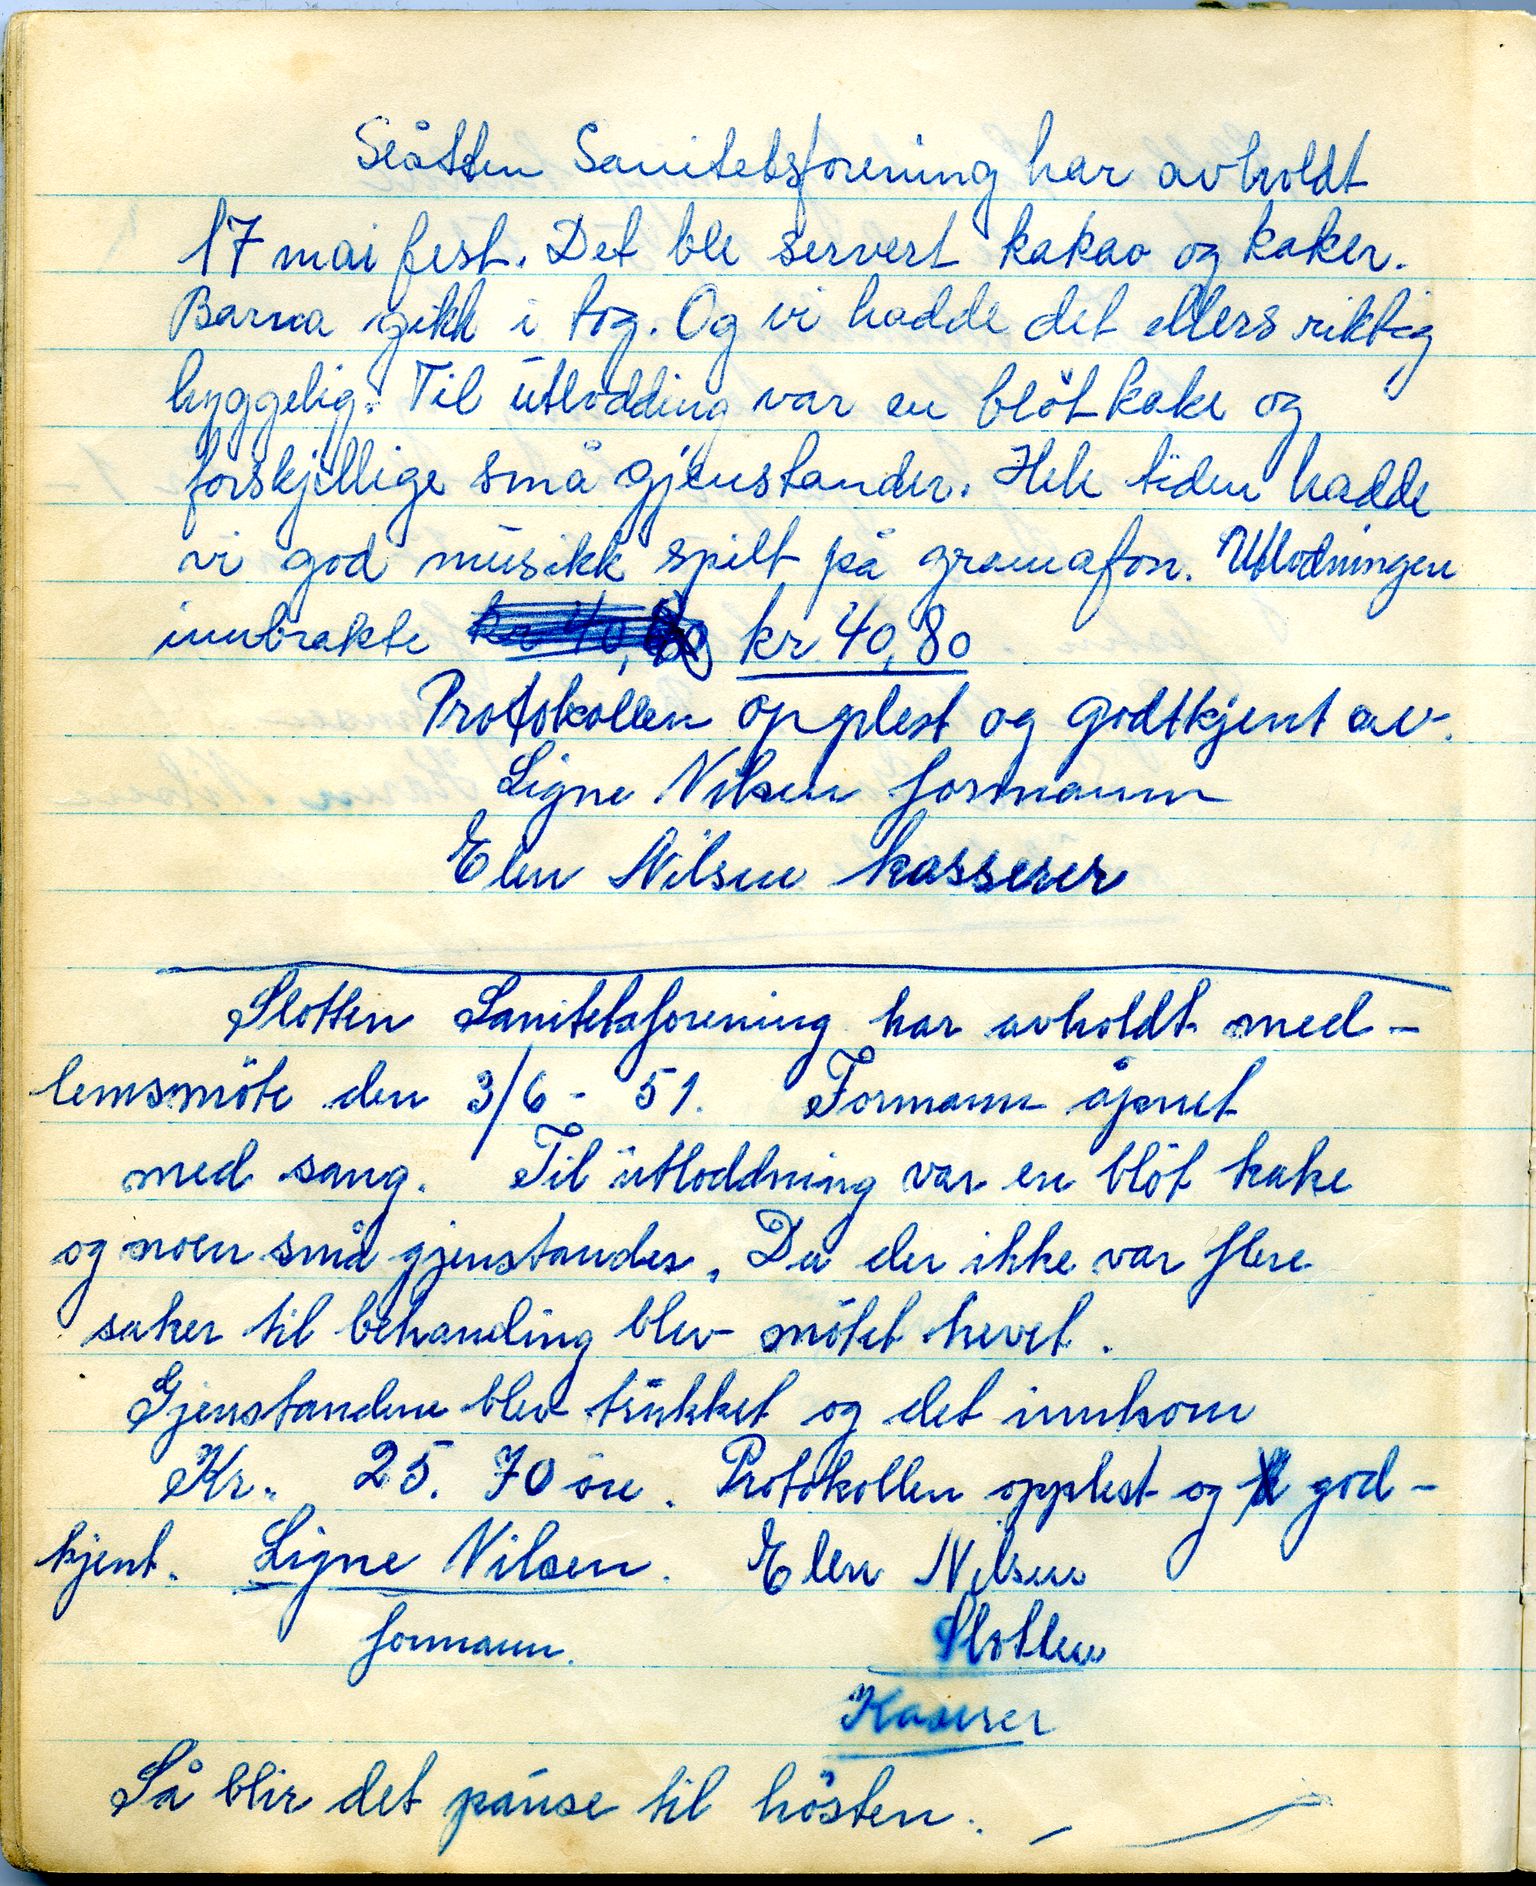 Slåtten Sanitetsforening har avholdt
17 mai fest. Det ble servert kakao og kaker.
Barna gikk i tog. Og vi hadde det ellers riktig
hyggelig. Til utlodding var en blötkake og
forskjellige små gjenstander. Hele tiden hadde
vi god musikk spilt på gramafon. Utlodningen
innbrakte kr 40,80
Protokollen opplest og godtkjent av.
Signe Nilsen formann
Elen Nilsen kasserer
Slotten Sanitetsforening har avholdt med-
lemsmöte den 3/6 - 51. Formann åpnet
med sang. Til utloddning var en blöt kake
og noen små gjenstander. Da der ikke var flere
saker til behandling blev mötet hevet.
Gjenstandene blev trukket og det innkom
Kr. 25. 70 öre. Protokollen opplest og god-
kjent. Signe Nilsen. Elen Nilsen
formann. Slotten
Kaserer
Så blir det pause til hösten.